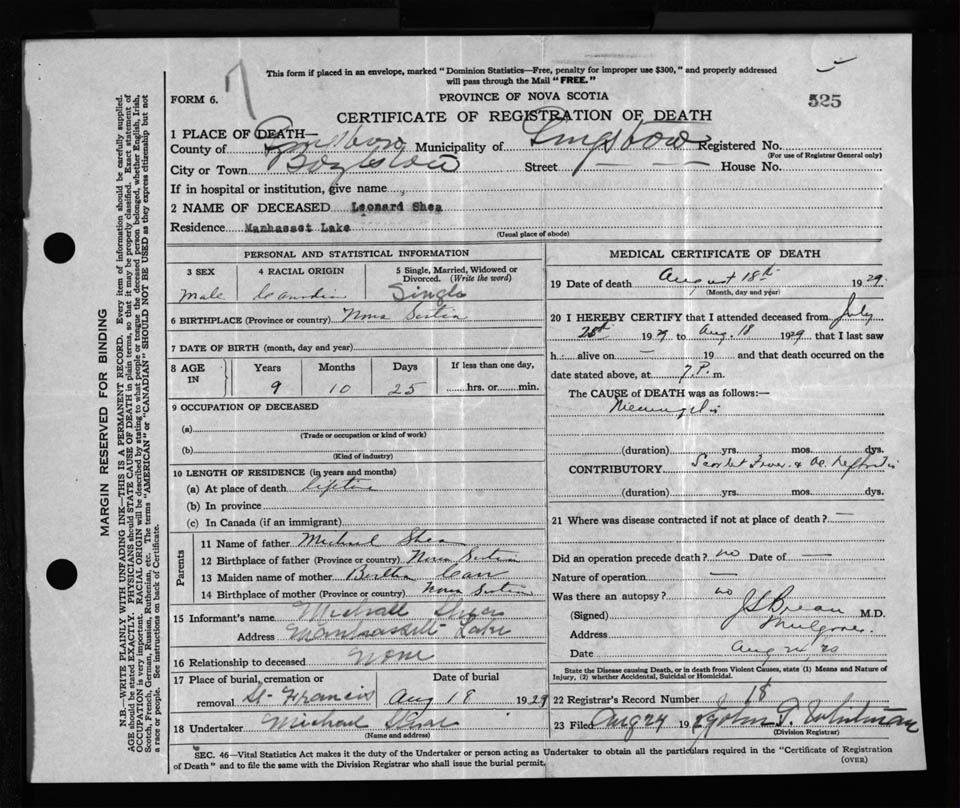 This form if placed in an envelope, marked "Dominion Statistics—Free, penalty for improper use $300," and properly addressed
will pass through the Mail "FREE."
7
525
FORM 6.
PROVINCE OF NOVA SCOTIA
CERTIFICATE OF REGISTRATION OF DEATH
1 PLACE OF DEATH—
County of Municipality of Registered No.
(For use of Registrar General only)
City or Town Boylston Street — House No.
If in hospital or institution, give name
2 NAME OF DECEASED Leonard Shea
Residence Manhasset Lake
(Usual place of abode)
PERSONAL AND STATISTICAL INFORMATION
3 SEX 4 RACIAL ORIGIN 5 Single, Married, Widowed or
Divorced. (Write the word)
Male Canadian Single
6 BIRTHPLACE (Province or country) Nova Scotia
7 DATE OF BIRTH (month, day and year)
8 AGE IN Years Months Days If less than one day,
9 10 25 hrs. or min.
9 OCCUPATION OF DECEASED
(a)
(Trade or occupation or kind of work)
(b)
(Kind of industry)
10 LENGTH OF RESIDENCE (in years and months)
(a) At place of death lifetime
(b) In province
(c) In Canada (if an immigrant)
Parents
11 Name of father Michael Shea
12 Birthplace of father (Province or country) Nova Scotia
13 Maiden name of mother Bertha
14 Birthplace of mother (Province or country) Nova Scotia
15 Informant's name Michael Shea
Address Manhassett Lake
16 Relationship to deceased None
17 Place of burial, cremation or Date of burial
removal St Francis Aug 18 1929
18 Undertaker Michael
(Name and address)
MEDICAL CERTIFICATE OF DEATH
19 Date of death August 18th 1929
(Month, day and year)
20 I HEREBY CERTIFY that I attended deceased from July
28th 1929 to Aug. 18 1929 that I last saw
h alive on — 19 and that death occurred on the
date stated above, at 7 P. m.
The CAUSE of DEATH was as follows:—
(duration) yrs. mos. dys.
CONTRIBUTORY Scarlet Fever & Ac. Nephritis
(duration) yrs. mos. dys.
21 Where was disease contracted if not at place of death? —
Did an operation precede death? no Date of —
Nature of operation —
Was there an autopsy? no
(Signed) M.D.
Address Mulgrave
Date Aug
State the Disease causing Death, or in death from Violent Causes, state (1) Means and Nature of
Injury, (2) whether Accidental, Suicidal or Homicidal.
22 Registrar's Record Number 18
23 Filed Aug 24 1929 John Whitman
(Division Registrar)
SEC. 46—Vital Statistics Act makes it the duty of the Undertaker or person acting as Undertaker to obtain all the particulars required in the "Certificate of Registration
of Death" and to file the same with the Division Registrar who shall issue the burial permit.
(OVER)
MARGIN RESERVED FOR BINDING
N.B.—WRITE PLAINLY WITH UNFADING INK—THIS IS A PERMANENT RECORD. Every item of information should be carefully supplied.
AGE should be stated EXACTLY. PHYSICIANS should STATE CAUSE OF DEATH in plain terms, so that it may be properly classified. Exact statement of
OCCUPATION is very important. RACIAL ORIGIN will be described by stating to what people or tongue the deceased person belonged, whether English, Irish,
Scotch, French, German, Russian, Ruthenian, etc. The terms "AMERICAN" or "CANADIAN" SHOULD NOT BE USED as they express citizenship but not
a race or people. See instructions on back of Certificate.